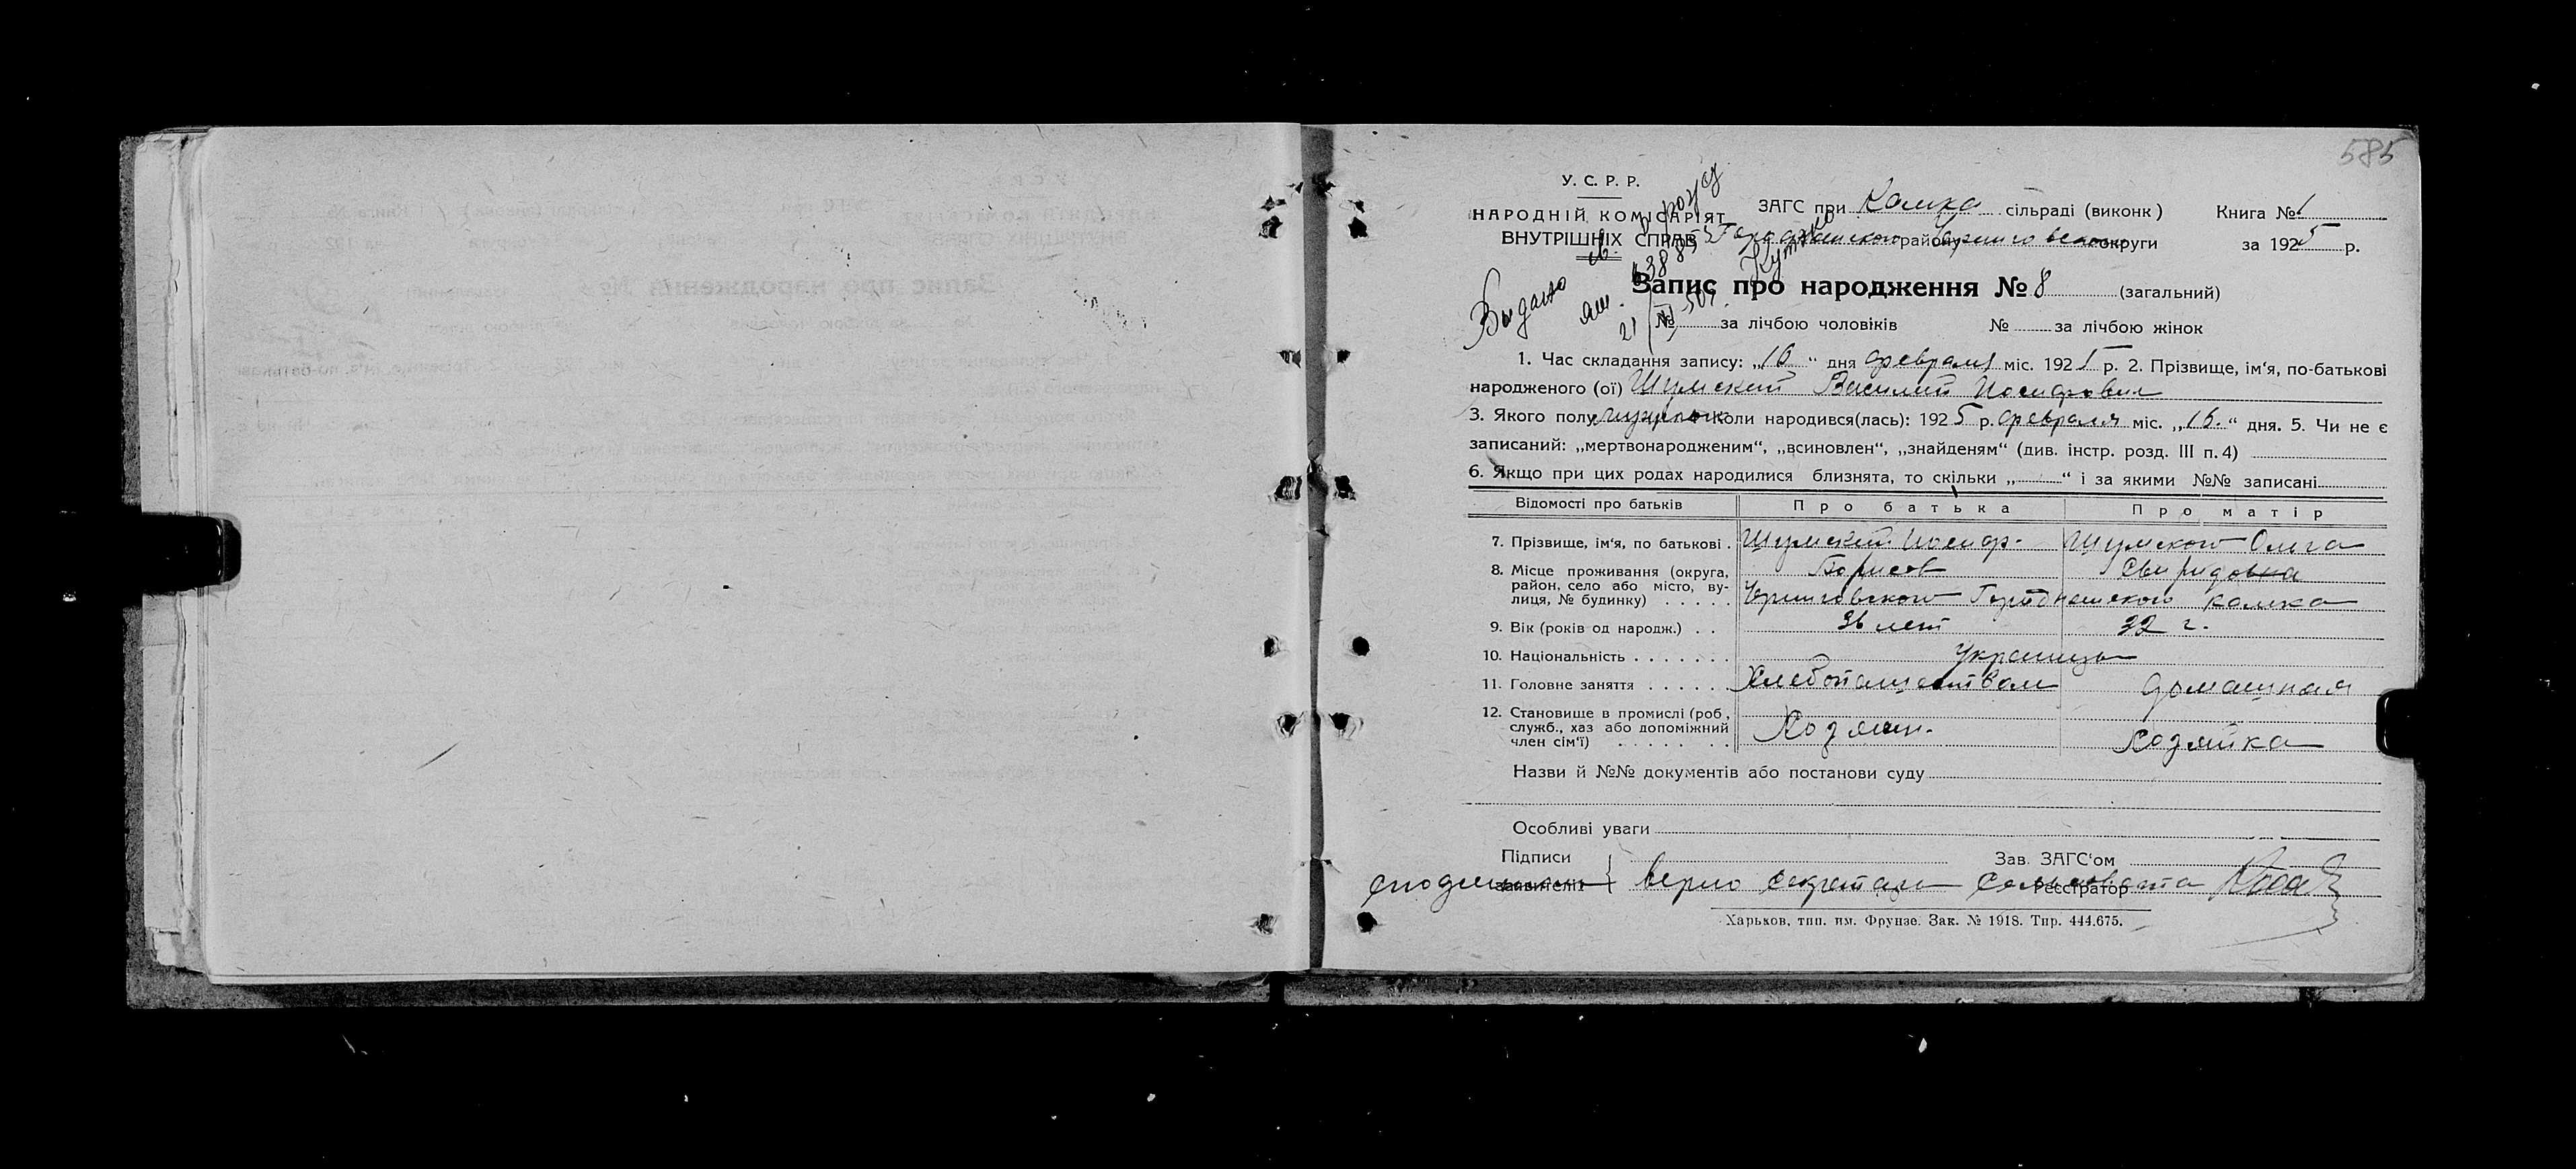 585
У. С. Р. Р.
НАРОДНІЙ КОМІСАРІЯТ
ВНУТРІШНІХ СПРАВ
ЗАГС при Камка сільраді (виконк)
Городнянского району Черниговской округи
Книга № 1
за 1925 р.
Выдано св.
21
Запис про народження № 8 (загальний)
№ за лічбою чоловіків № за лічбою жінок
1. Час складання запису: „16“ дня февраля міс. 1925 р. 2. Прізвище, ім‘я, по-батькові
народженого (ої) Шумский Василий Иосифович
3. Якого полу мужеского коли народився(лась): 1925 р. февраля міс. „16.“ дня. 5. Чи не є
записаний: „мертвонародженим“, „всиновлен“, „знайденям“ (див. інстр. розд. III п. 4)
6. Якщо при цих родах народилися близнята, то скільки „ “ і за якими №№ записані
Відомості про батьків Про батька Про матір
7. Прізвище, ім‘я, по батькові . Шумский Иосиф Борисов Шумская Ольга Свиридовна
8. Місце проживання (округа, район, село або місто, вулиця, № будинку) . . . . . Черниговского Городнянского Камка
9. Вік (років од народж.) . . 36 лет 32 г.
10. Національність . . . . . . . Украинцы
11. Головне заняття . . . . . . Хлебопашеством домашная
12. Становище в промислі (роб., служб., хаз або допоміжний член сім‘ї) . . . . . . . . Хозяин. Хозяйка
Назви й №№ документів або постанови суду
Особливі уваги
Підписи Зав. ЗАГС‘ом
заявителів верно Секретарь Сельсовета Реєстратор
Харьков, тип. им. Фрунзе. Зак. № 1918. Тир. 444.675.